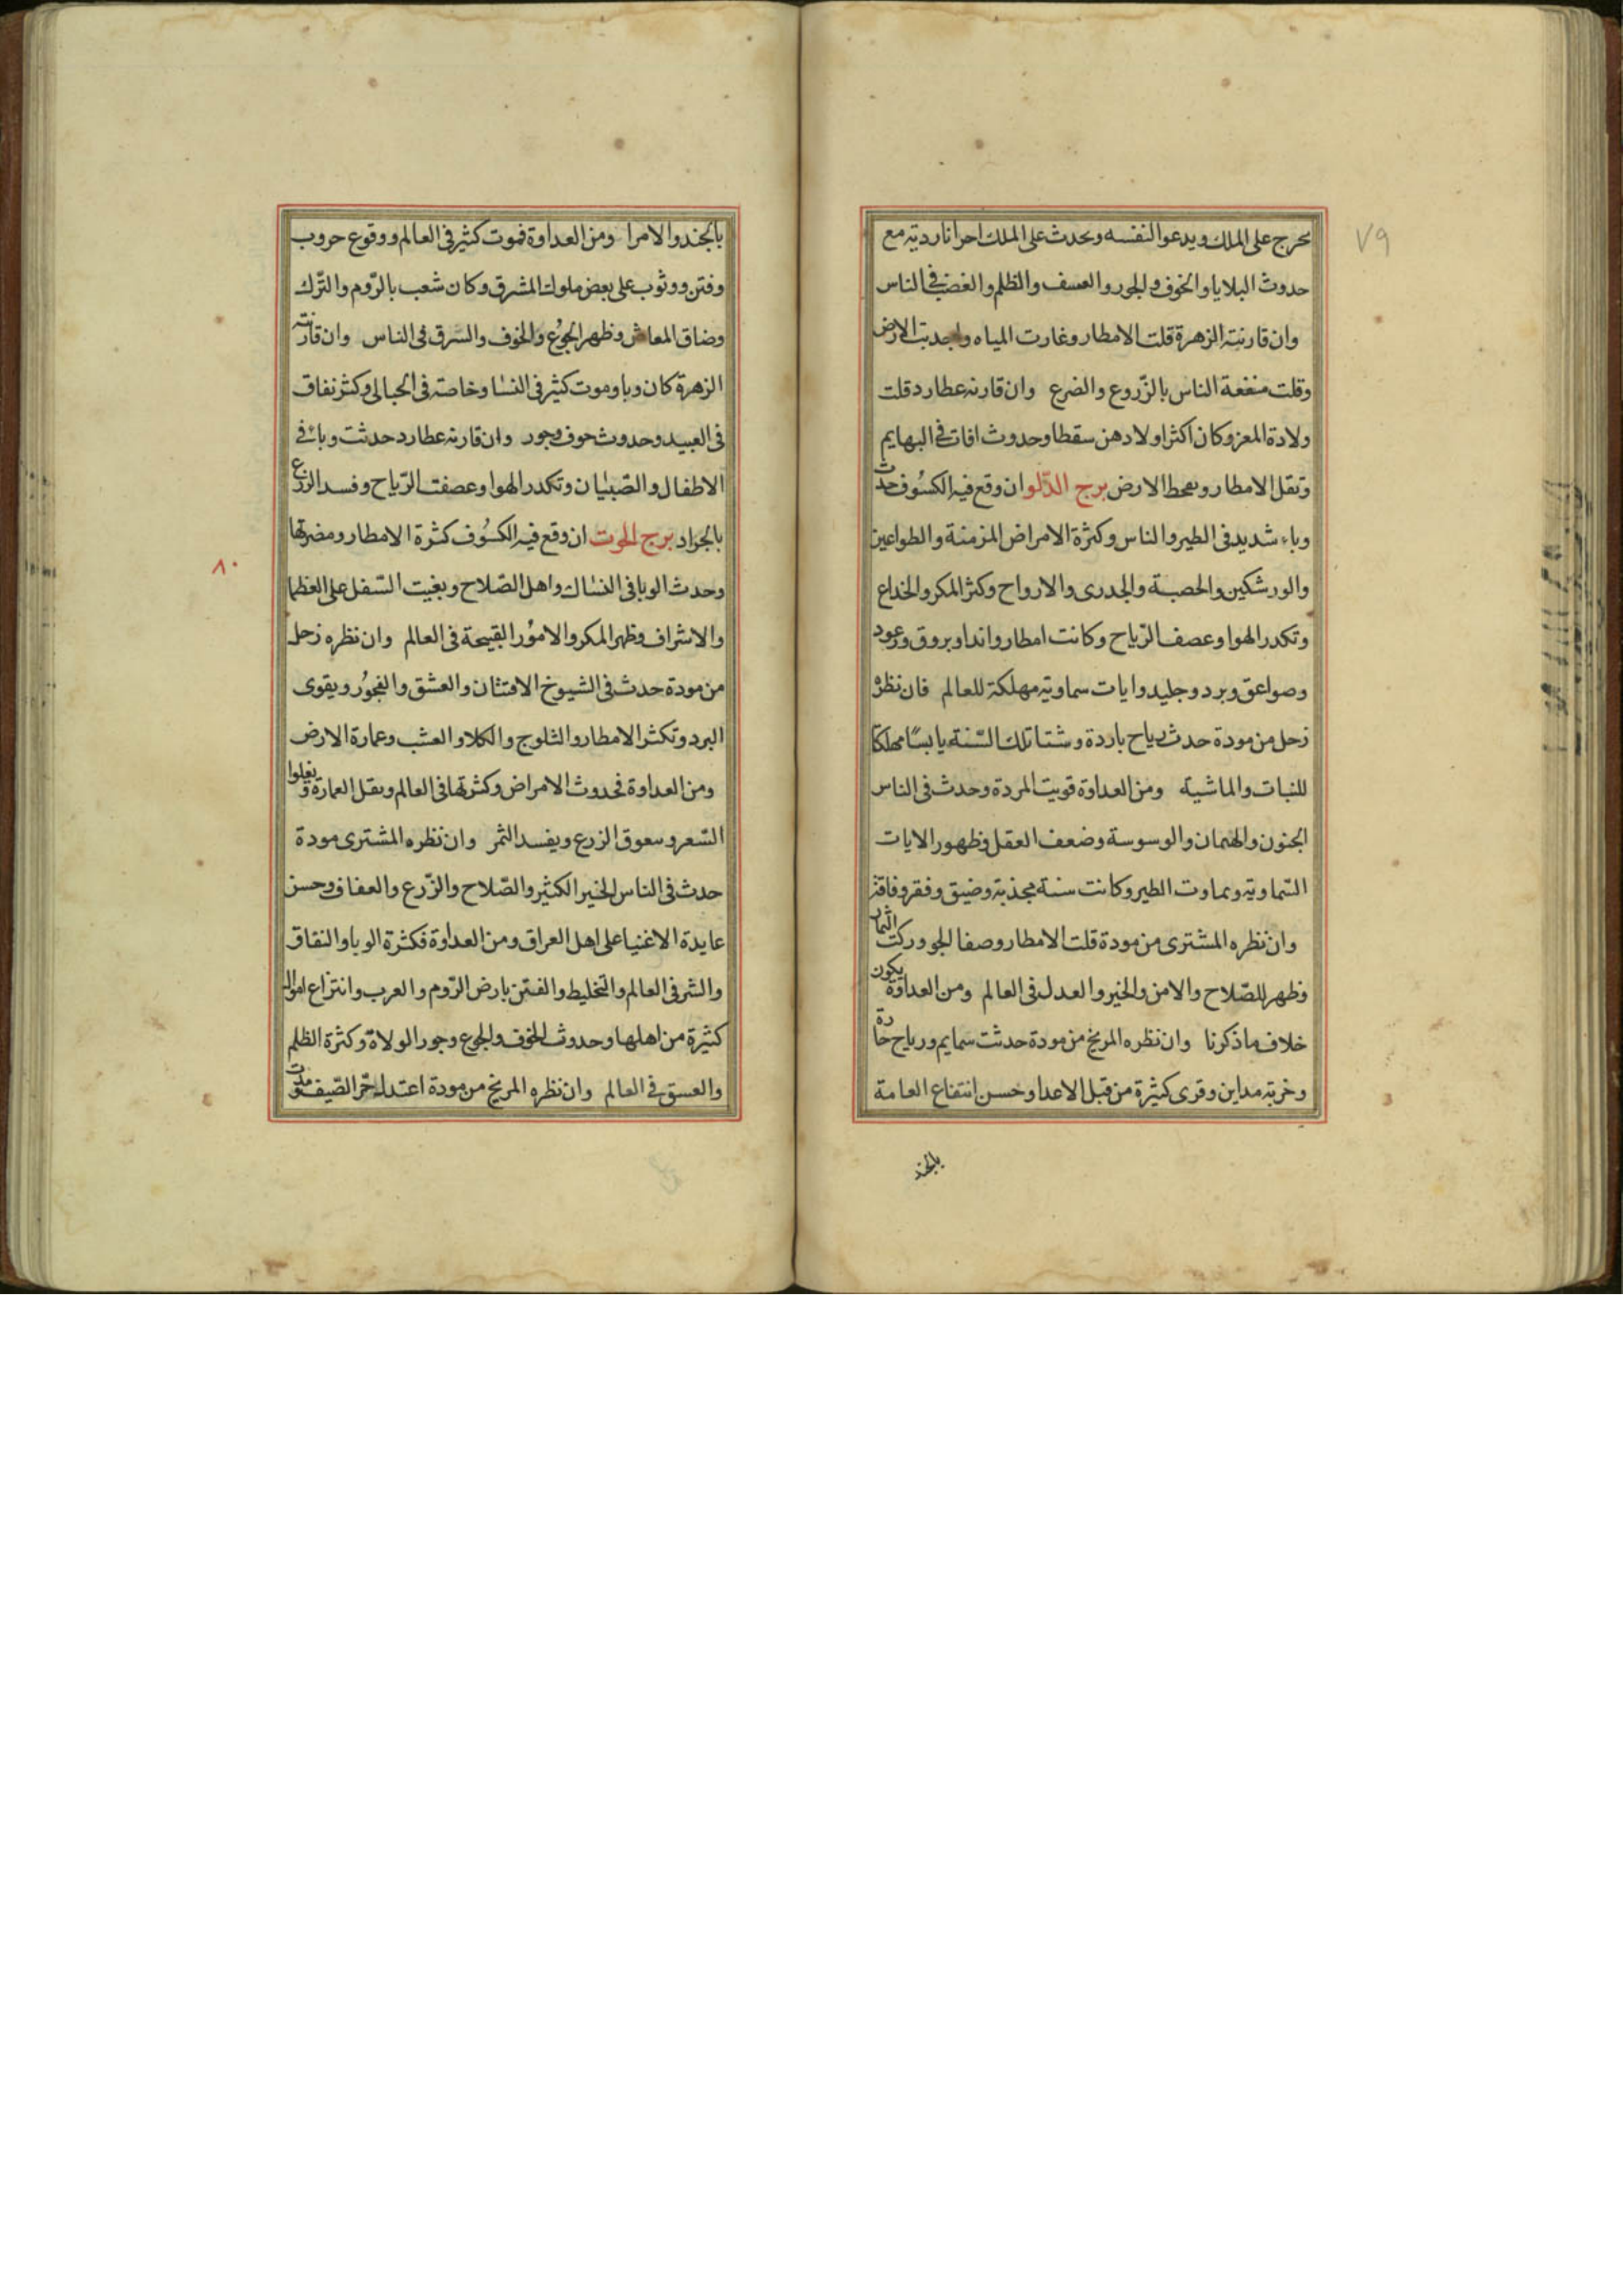 ٧٩
يخرج على الملك ويدعوا لنفسه ويحدث على الملك احزانا رديّه مع
حدوث البلايا والخوف والجور والعسف والظلم والغضب في الناس
وان قارنته الزهرة قلت الامطار وغارت المياه واجدبت الارض
وقلت منفعة الناس بالزّروع والضرع وان قارنه عطارد قلت
ولادة المعز وكان اكثر اولادهن سقطا وحدوث افات في البهايم
وتقل الامطار ويقحط الارض برج الدّلو ان وقع فيه الكسُوف حدث
وباء شديد في الطير والناس وكثرة الامراض المزمنة والطواعين
والورشكين والحصبة والجدرى والارواح وكثر المكر والخداع
وتكدر الهوا وعصف الرّياح وكانت امطار واندا وبروق ورعود
وصواعق وبرد وجليد وايات سماويّه مهلكة للعالم فان نظره
زحل من مودة حدث رياح باردة وشتا تلك السّنة يابسًا مهلكا
للنبات والماشية ومن العداوة قويت المردة وحدث في الناس
الجنون والهيمان والوسوسة وضعف العقل وظهور الايات
السّماويّه ويماوت الطير وكانت سنة مجذبة وضيق وفقر وفاقة
وان نظره المشترى من مودة قلت الامطار وصفا الجو وركت الثمار
وظهر للصّلاح والامن والخير والعدل في العالم ومن العداوة يكون
خلاف ماذكرنا وان نظره المريخ من مودة حدثت سمايم ورياح حارة
وخربة مداين وقرى كثيرة من قبل الاعدا وحسن انتفاع العامة
بالجند
بالجند والامرا ومن العداوة فموت كثير في العالم ووقوع حروب
وفتن ووثوب على بعض ملوك المشرق وكان شعب بالرّوم والتّرك
وضاق المعاش وظهر الجوُع والخوف والسّرق في الناس وان قارنته
الزهرة كان وبا وموت كثير في النسا وخاصة في الحبالى وكثر نفاق
في العبيد وحدوث خوف وجور وان قارنه عطارد حدثت وباء في
الاطفال والصّبيان وتكدر الهوا وعصفت الرّياح وفسد الزرع
بالجراد برج الحوت ان وقع فيه الكسُوف كثرة الامطار ومضرتها
٨٠
وحدث الوبا في النساك واهل الصّلاح وبغيت السّفل على العظما
والاشراف وظهر المكر والامُور القبيحة في العالم وان نظره زحل
من مودة حدث في الشيوخ الافتتان والعشق والفجوُر ويقوى
البرد وتكثر الامطار والثلوج والكلا والعشب وعمارة الارض
ومن العداوة فحدوث الامراض وكثرتها في العالم ويقل العمارة ويغلوا
السّعر ويعوق الزرع ويفسد الثمر وان نظره المشترى مودة
حدث في الناس الخير الكثير والصّلاح والزّرع والعفاف وحسن
عايدة الاغنيا على اهل العراق ومن العداوة فكثرة الوبا والنفاق
والشر في العالم والتخليط والفتن بارض الرّوم والعرب وانتزاع اموال
كثيرة من اهلها وحدوث الخوف والجوع وجور الولاة وكثرة الظلم
والعسق في العالم وان نظره المريخ من مودة اعتدل حرّ الصّيف